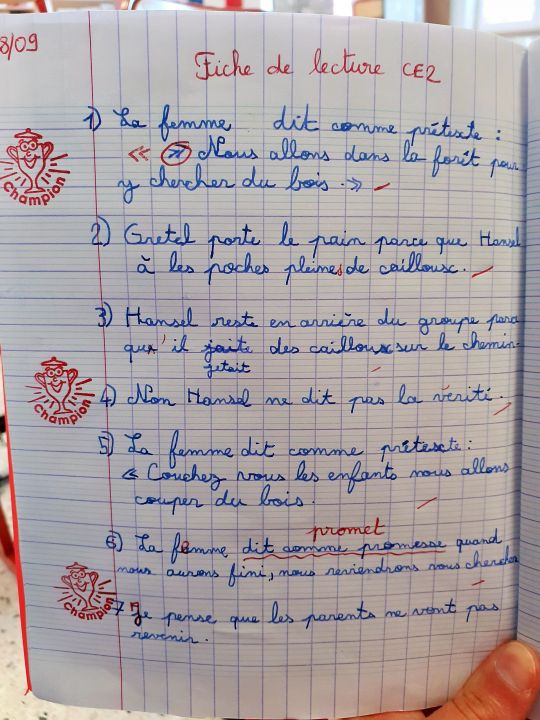 8/09
Fiche de lecture CE2
1) La femme dit comme prétexte :
« » Nous allons dans la forêt pour
y chercher du bois. »
2) Gretel porte le pain parce que Hansel
à les poches pleines de cailloux.
3) Hansel reste en arrière du groupe parce
qu'il jaite des cailloux sur le chemin.
jetait
4) Non Hansel ne dit pas la vérité.
5) La femme dit comme prétexte :
« Couchez vous les enfants nous allons
couper du bois.
promet
6) La femme dit comme promesse quand
nous aurons fini, nous reviendrons vous chercher
7 Je pense que les parents ne vont pas
revenir.
Champion
Champion
Champion